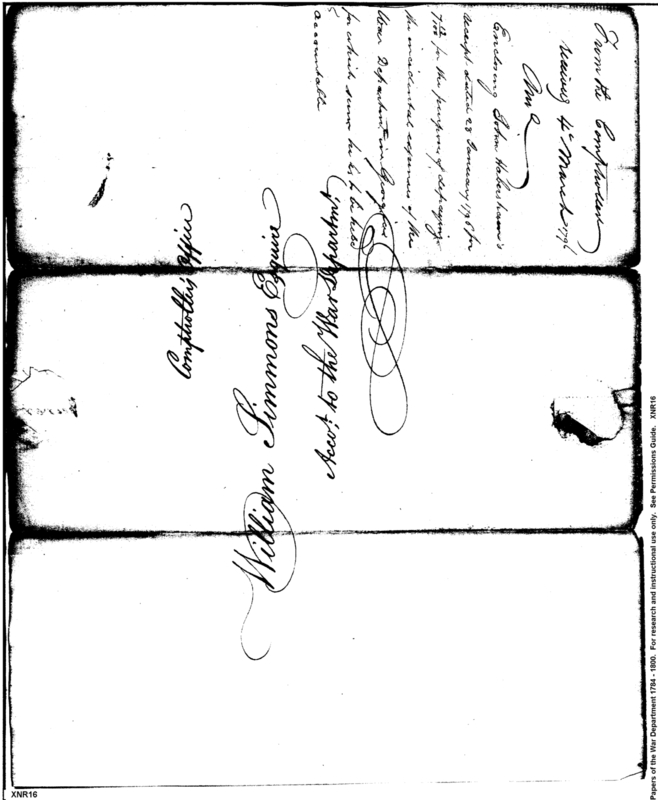 From the Comptroller
receiving 4th March 1796
Enclosing John Habersham's
receipt dated 28 January 1796 for
for the purpose of defraying
the incidental expenses of the
War Department in Georgia
for which sum he is to be held
accountable
William Simmons Esquire
Accot. to the War Departmt.
Comptrollers Office
XNR16
Papers of the War Department 1784 - 1800. For research and instructional use only. See Permissions Guide. XNR16